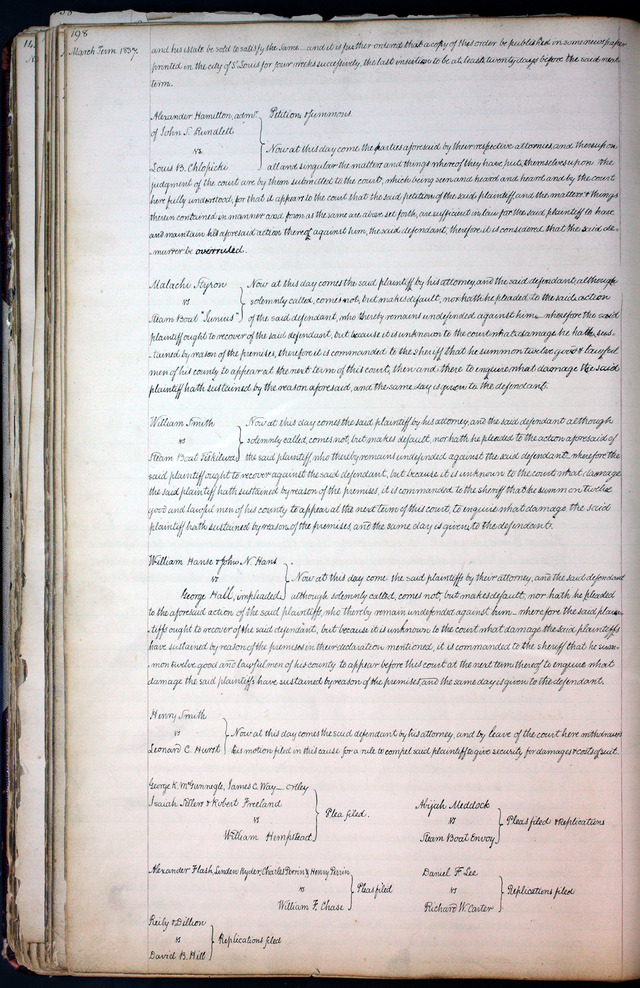 198
March Term 1837.
and his estate be sold to satisfy the same — and it is further ordered that a copy of this order be published in some newspaper
printed in the city of St Louis for four weeks successively, the last insertion to be at least twenty days before the said next
term.
Alexander Hamilton, admr. } Petition & summons.
of John S. Rundlett
vs
Louis B. Chlopicki
Now at this day come the parties aforesaid by their respective attornies, and thereupon
all and singular the matters and things whereof they have put themselves upon the
judgment of the court are by them submitted to the court, which being seen and heard and heard and by the court
here fully understood, for that it appears to the court that the said petition of the said plaintiff and the matters & things
therein contained in manner and form as the same are above set forth, are sufficient in law for the said plaintiff to have
and maintain his aforesaid action thereof against him, the said defendant, therefore it is considered that the said de-
murrer be overruled.
Malachi Styron
vs
Steam Boat "Junius"
Now at this day comes the said plaintiff by his attorney, and the said defendant, although
solemnly called, comes not, but makes default, nor hath he pleaded to the said action
of the said defendant, who thereby remains undefended against him wherefore the said
plaintiff ought to recover of the said defendant, but because it is unknown to the court what damage he hath sus-
tained by reason of the premises, therefore it is commanded to the sheriff that he summon twelve good & lawful
men of his county to appear at the next term of this court, then and there to enquire what damage the said
plaintiff hath sustained by the reason aforesaid, and the same day is given to the defendant.
William Smith
vs
Steam Boat
Now at this day comes the said plaintiff by his attorney, and the said defendant although
solemnly called, comes not, but makes default, nor hath he pleaded to the action aforesaid of
the said plaintiff, who thereby remains undefended against the said defendant, wherefore the
said plaintiff ought to recover against the said defendant, but because it is unknown to the court what damage
the said plaintiff hath sustained by reason of the premises, it is commanded to the sheriff that he summon twelve
good and lawful men of his county to appear at the next term of this court, to enquire what damage the said
plaintiff hath sustained by reason of the premises, and the same day is given to the defendant.
William Hanse & John N. Hans
vs
George Hall, impleaded
Now at this day come the said plaintiffs by their attorney, and the said defendant
although solemnly called, comes not, but makes default, nor hath he pleaded
to the aforesaid action of the said plaintiffs, who thereby remain undefended against him — wherefore the said plain-
tiffs ought to recover of the said defendant, but because it is unknown to the court what damage the said plaintiffs
have sustained by reason of the premises in their declaration mentioned, it is commanded to the sheriff that he sum-
mon twelve good and lawful men of his county to appear before this court at the next term thereof to enquire what
damage the said plaintiffs have sustained by reason of the premises, and the same day is given to the defendant.
Henry Smith
vs
Leonard C. Hurst
Now at this day comes the said defendant by his attorney, and by leave of the court here withdraws
his motion filed in this cause for a rule to compel said plaintiff to give security for damages & costs of suit.
George K. McGunnegle, James C. Way
Isaiah Sellers & Robert Freeland
vs
William Hempstead
Plea filed.
Abijah Meddock
vs
Steam Boat Envoy
Pleas filed & Replications
Alexander Flash, Linden Ryder, Charles Perrin & Henry Perrin
vs
William F. Chase
Pleas filed
Daniel F. Lee
vs
Richard W. Carter
Replications filed
Reily & Dillion
vs
David B. Hill
Replications filed